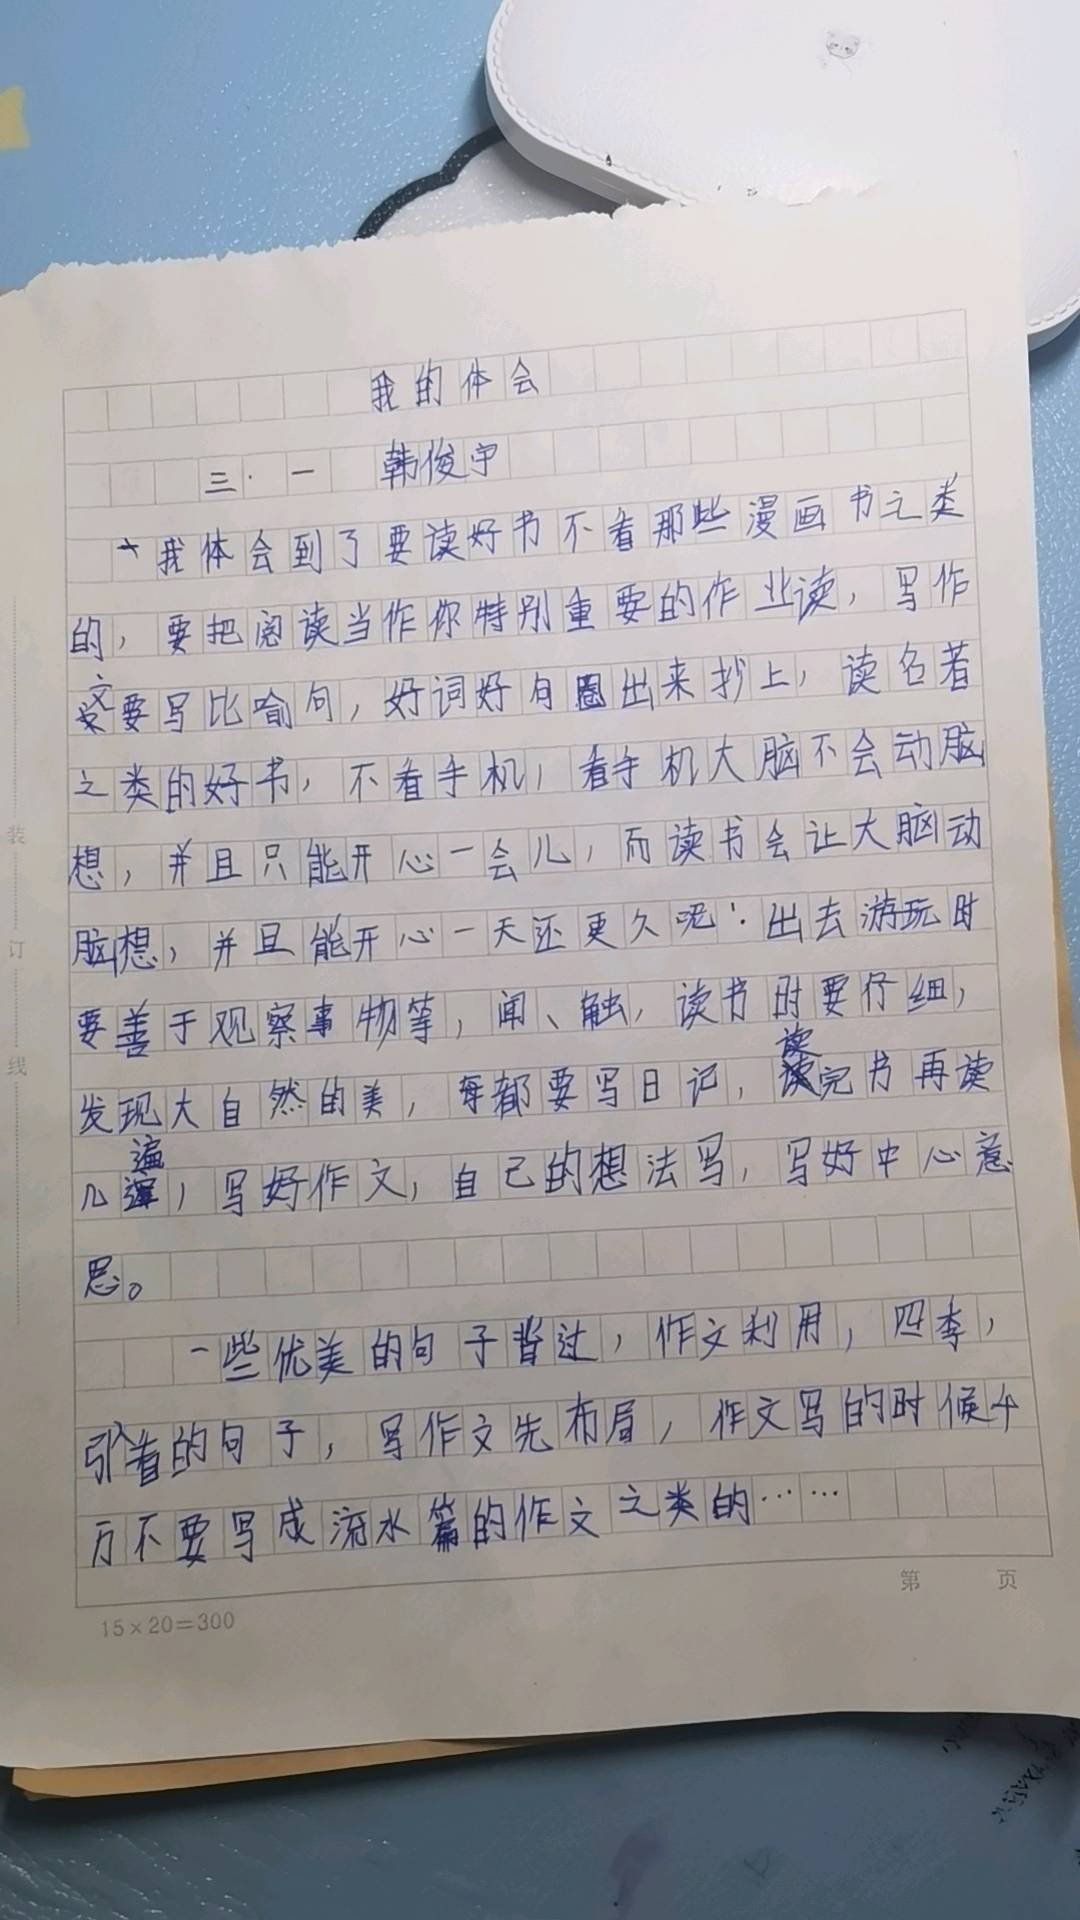 我的体会
三.一 韩俊宇
我体会到了要读好书不看那些漫画书之类
的，要把阅读当作你特别重要的作业读，写作
文要写比喻句，好词好句圈出来抄上，读名著
之类的好书，不看手机，看手机大脑不会动脑
想，并且只能开心一会儿，而读书会让大脑动
脑想，并且能开心一天还更久呢！出去游玩时
要善于观察事物等，闻、触，读书时要仔细，
发现大自然的美，每都要写日记，读完书再读
几遍，写好作文，自己的想法写，写好中心意
思。
一些优美的句子背过，作文利用，四季，
引人着的句子，写作文先布局，作文写的时候千
万不要写成流水篇的作文之类的……
装
订
线
第 页
15×20=300